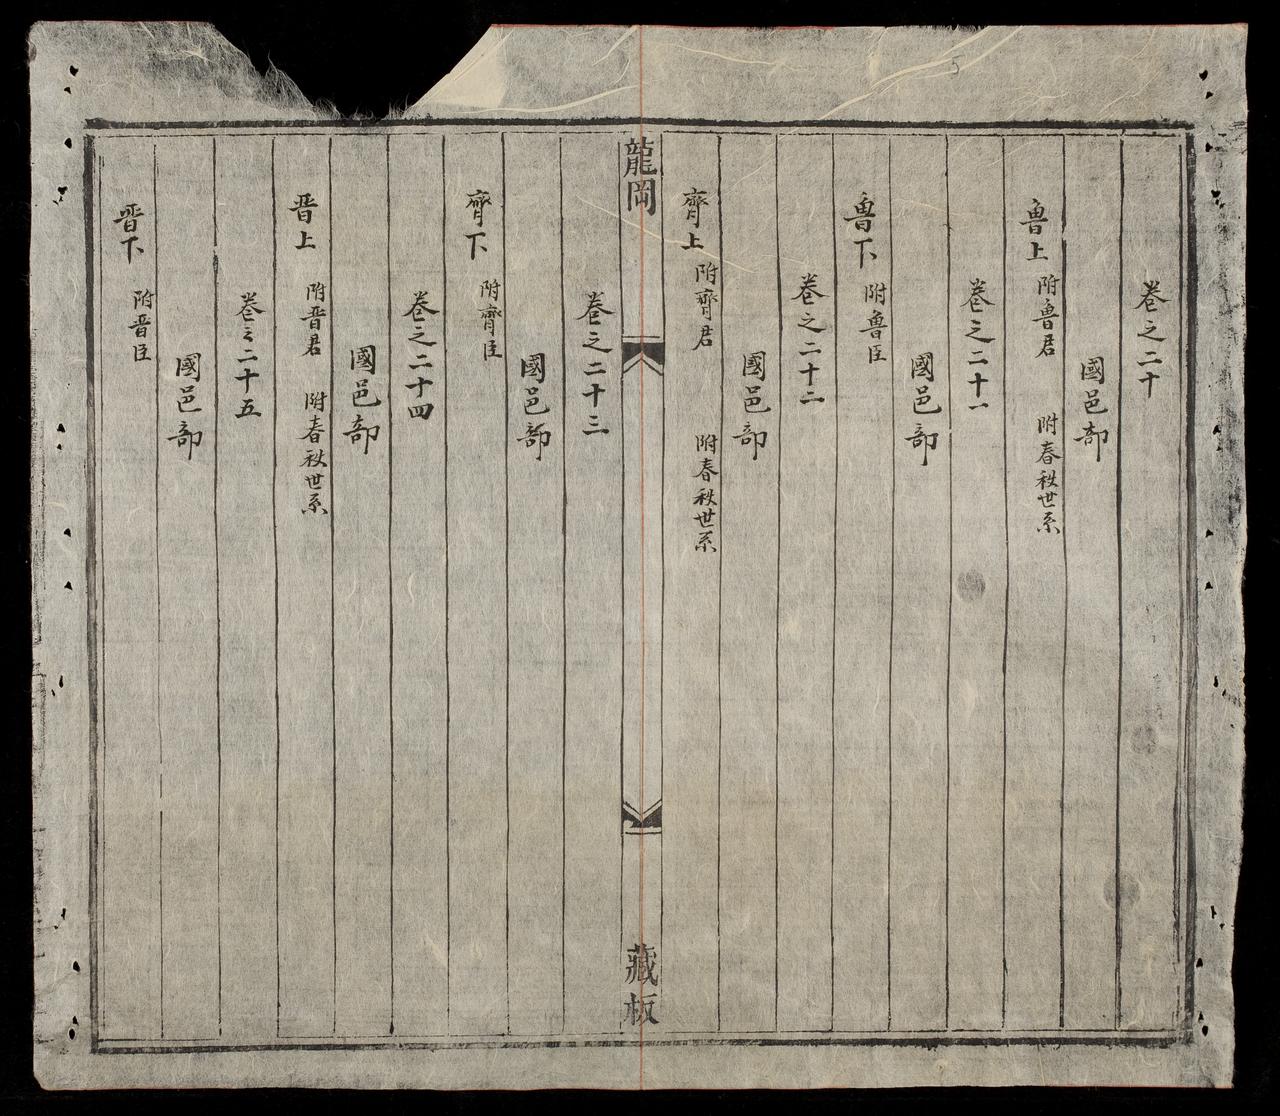 卷之二十
國邑部
魯上 附魯君 附春秋世系
卷之二十一
國邑部
魯下 附魯臣
卷之二十二
國邑部
齊上 附齊君 附春秋世系
龍岡 藏板
卷之二十三
國邑部
齊下 附齊臣
卷之二十四
國邑部
晋上 附晋君 附春秋世系
卷之二十五
國邑部
晋下 附晋臣
5